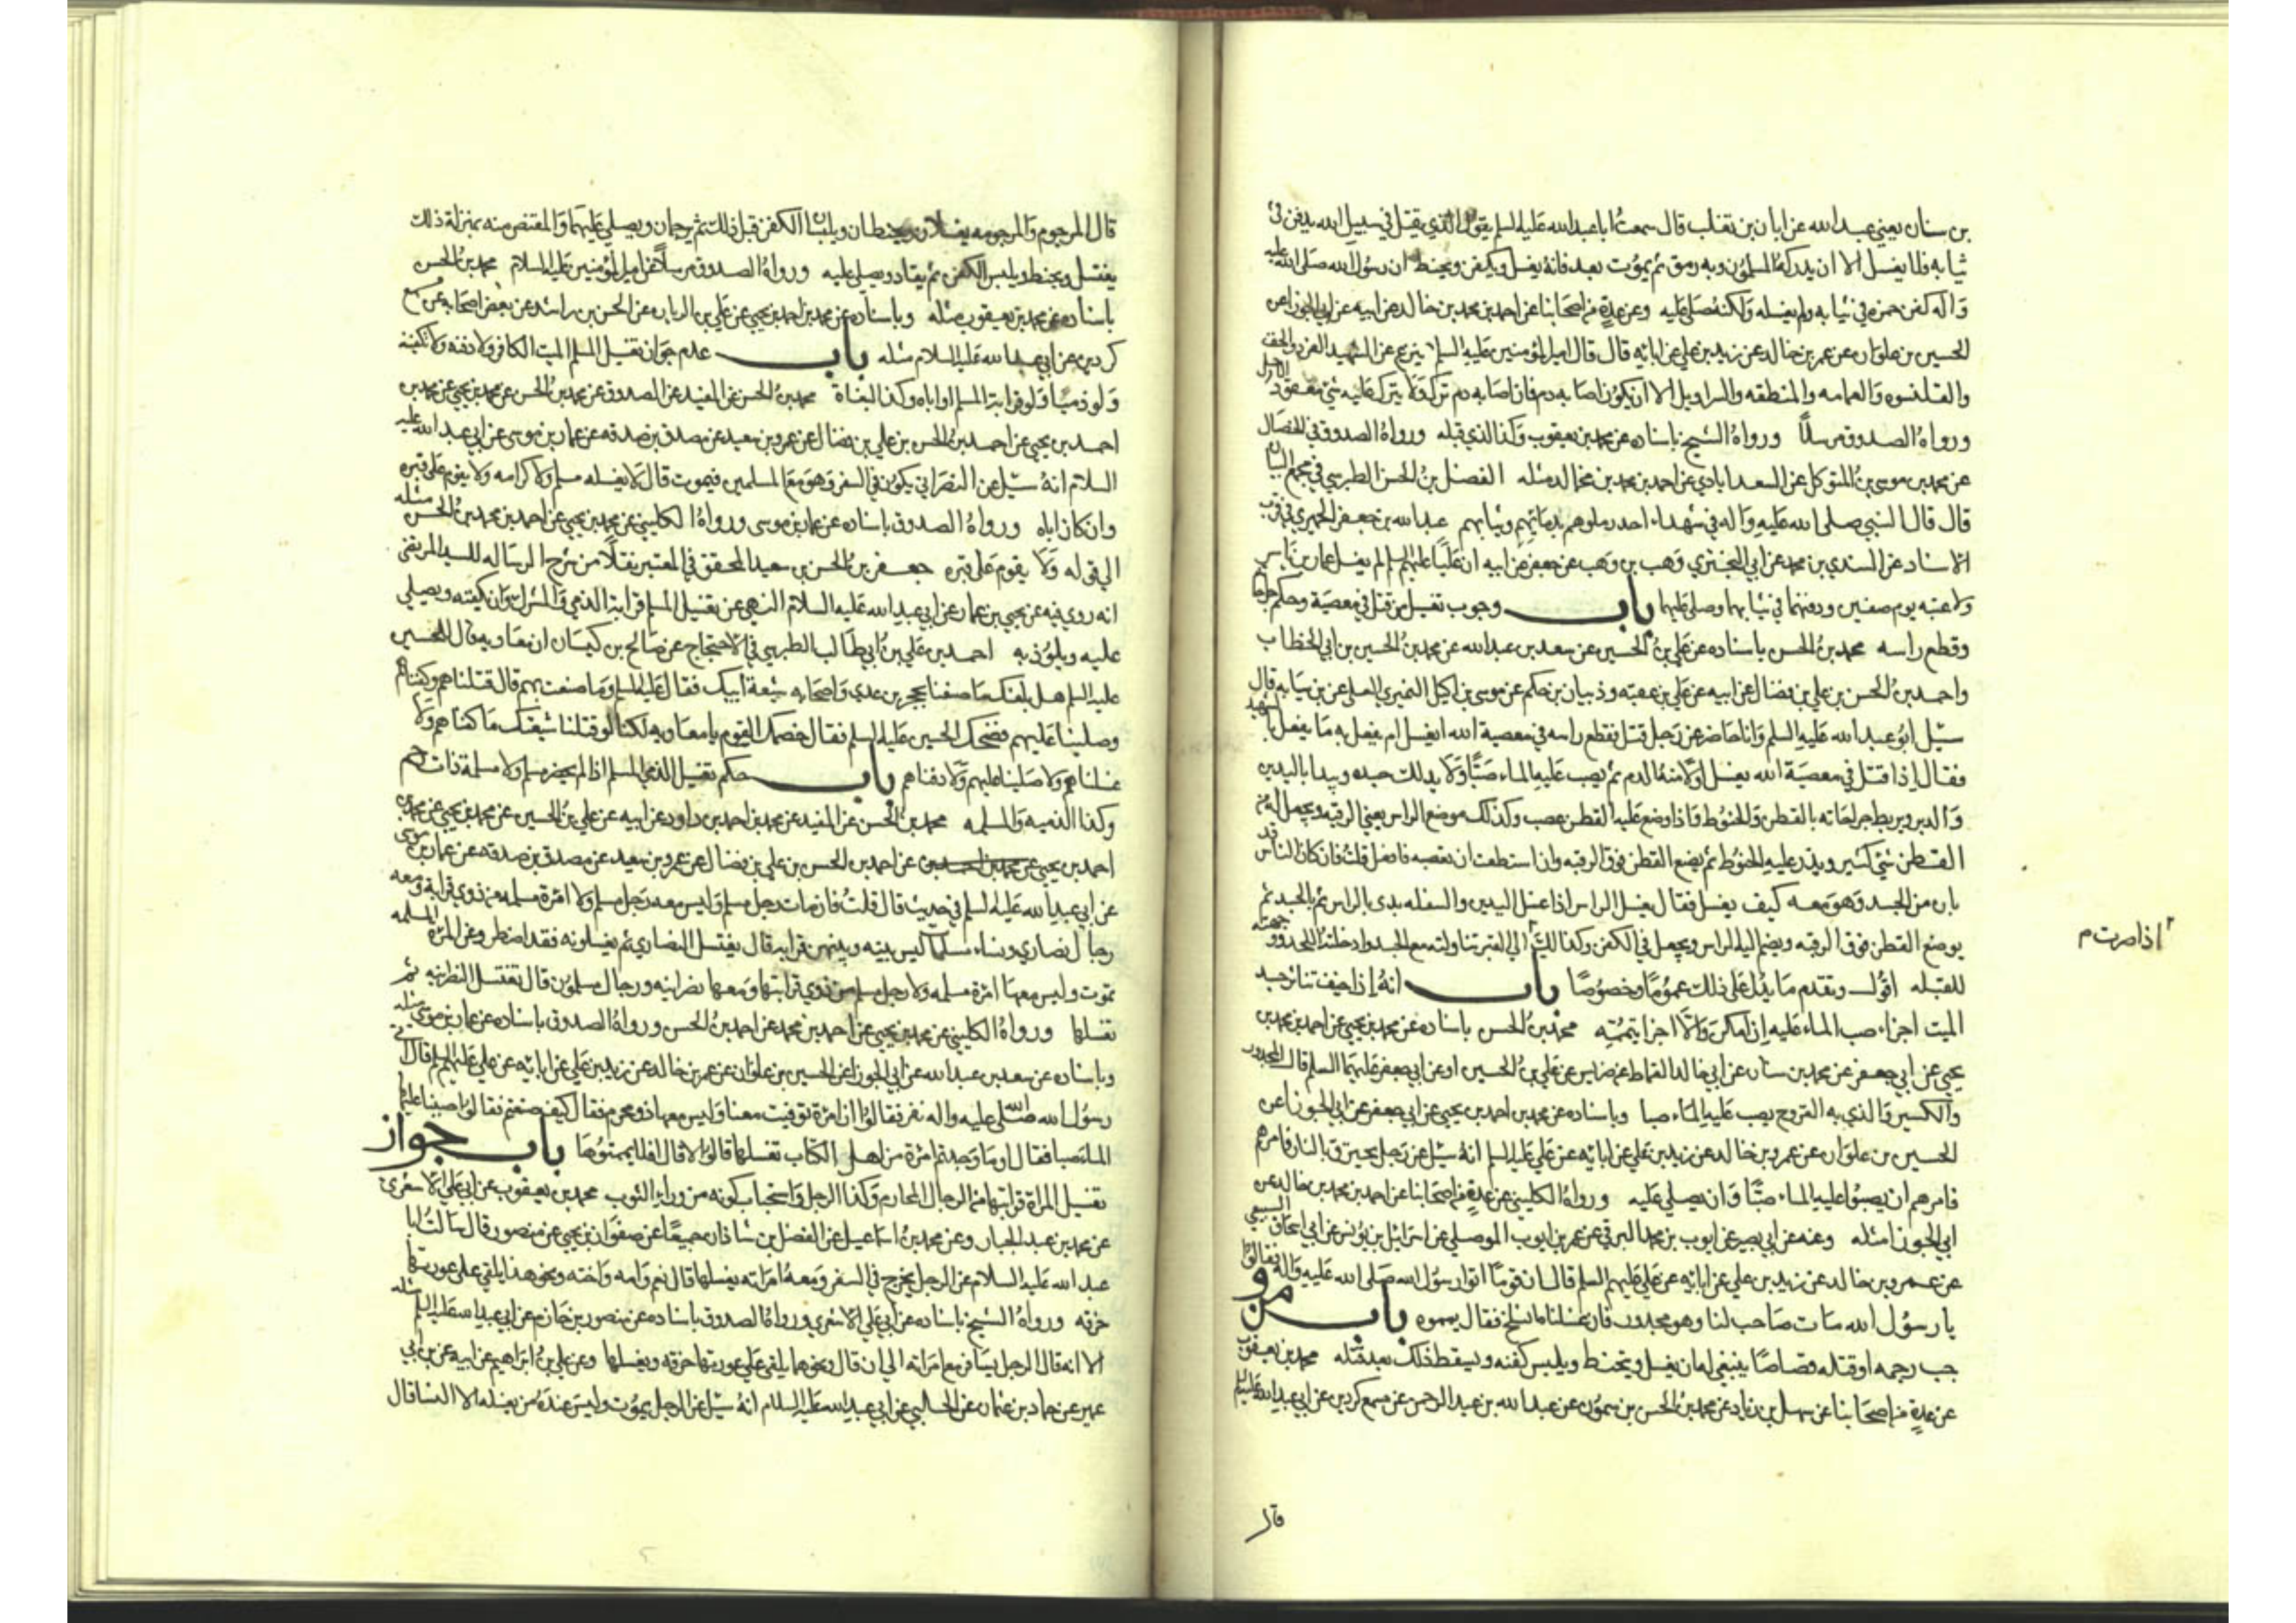 بن سنان يعني عبدالله عن ابان بن تغلب قال سمعت ابا عبدالله عليه السلم يقول الذي يقتل في سبيل الله يدفن في
ثيابه فلا يغسل الا ان يدركه المسلمون وبه رمق ثم يموت بعد فانه يغسل ويكفن ويحنط ان رسول الله صلى الله عليه
واله كفن حمزه في ثيابه ولم يغسله ولكنه صلى عليه وعن عدة من اصحابنا عن احمد بن محمد بن خالد عن ابيه عن ابي الجوزا عن
الحسين بن علوان عن عمر بن خالد عن زيد بن علي عن ابائه قال قال امير المؤمنين عليه السلم ينزع عن الشهيد الفرو والخف
والقلنسوه والعمامه والمنطقه والسراويل الا ان يكون اصابه دم فان اصابه دم ترك ولا يترك عليه شئ معقود الا حل
ورواه الصدوق مرسلا ورواه الشيخ باسناده عن محمد بن يعقوب وكذا الذي قبله ورواه الصدوق في الخصال
عن محمد بن موسى بن المتوكل عن السعدابادي عن احمد بن محمد بن خالد مثله الفضل بن الحسن الطبرسي في مجمع البيان
قال قال النبي صلى الله عليه واله في شهداء احد زملوهم بدمائهم وثيابهم عبدالله بن جعفر الحميري في قرب
الاسناد عن السندي بن محمد عن ابي البختري وهب بن وهب عن جعفر عن ابيه ان عليا عليهم السلم لم يغسل عمار بن ياسر
ولا عتبه يوم صفين ودفنهما في ثيابهما وصلى عليهما باب وجوب تغسيل من قتل في معصية وحكم
وقطع راسه محمد بن الحسن باسناده عن علي بن الحسين عن سعد بن عبدالله عن محمد بن الحسين بن ابي الخطاب
واحمد بن الحسن بن علي بن فضال عن ابيه عن علي بن عقبه وذبيان بن حكم عن موسى بن اكيل النميري عن العلا عن بن سيابه قال
سئل ابو عبدالله عليه السلم وانا حاضر عن رجل قتل فقطع راسه في معصية الله ايغسل ام يفعل به ما يفعل بالشهيد
فقال اذا قتل في معصية الله يغسل اولا منه الدم ثم يصب عليه الماء صبا ولا يدلك جسده ويبدا باليدين
والدبر ويربط جراحاته بالقطن والحنوط فاذا وضع عليه القطن عصب وكذلك موضع الراس يعني الرقبه ويجعل له من
القطن شئ كثير ويذر عليه الحنوط ثم يضع القطن فوق الرقبه وان استطعت ان تعصبه فافعل قلت فان كان الراس قد
بان من الجسد وهو معه كيف يغسل فقال يغسل الراس اذا غسل اليدين والسفله بدى بالراس ثم بالجسد ثم
يوضع القطن فوق الرقبه ويضم اليه الراس ويجعل في الكفن وكذلك الى القبر تناولته مع الجسد وادخلته اللحد ووجهته
اذا صرت م
للقبله اقول وتقدم ما يدل على ذلك عموما وخصوصا باب انه اذا خيف تناثر جسد
الميت اجزاء صب الماء عليه ان امكن والا اجزا تيممه محمد بن الحسن باسناده عن محمد بن يحيى عن احمد بن محمد بن
يحيى عن ابي جعفر عن محمد بن سنان عن ابي خالد القماط عن ضريس عن علي بن الحسين او عن ابي جعفر عليهما السلم قال المجدور
والكسير والذي به القروح يصب عليه الماء صبا وباسناده عن محمد بن احمد بن يحيى عن ابي جعفر عن ابي الجوزا عن
الحسين بن علوان عن عمرو بن خالد عن زيد بن علي عن ابائه عن علي عليه السلم انه سئل عن رجل يحترق بالنار فامرهم
فامرهم ان يصبوا عليه الماء صبا وان يصلى عليه ورواه الكليني عن عدة من اصحابنا عن احمد بن محمد بن خالد عن
ابي الجوزا مثله وعنه عن ابي بصير عن ايوب بن محمد البرقي عن عمر بن ايوب الموصلي عن اسرائيل بن يونس عن ابي اسحاق السبيعي
عن عمرو بن خالد عن زيد بن علي عن ابائه عن علي عليهم السلم قال ان قوما اتوا رسول الله صلى الله عليه واله فقالوا
يا رسول الله مات صاحب لنا وهو مجدور فان غسلناه انسلخ فقال يمموه باب من و
جب رجمه او قتله قصاصا ينبغي له ان يغسل ويحنط ويلبس كفنه ويسقط ذلك بعد قتله محمد بن يعقوب
عن عدة من اصحابنا عن سهل بن زياد عن محمد بن الحسن بن شمون عن عبدالله بن عبد الرحمن عن مسمع كردين عن ابي عبدالله عليه السلم
قال
قال المرجوم والمرجومه يغسلان ويحنطان ويلبسان الكفن قبل ذلك ثم يرجمان ويصلى عليهما والمقتص منه بمنزلة ذلك
يغتسل ويحنط ويلبس الكفن ثم يقاد ويصلى عليه ورواه الصدوق مرسلا عن امير المؤمنين عليه السلام محمد بن الحسن
باسناده عن محمد بن يعقوب مثله وباسناده عن محمد بن احمد بن يحيى عن علي بن الريان عن الحسن بن راشد عن بعض اصحابه عن مسمع
كردين عن ابي عبدالله عليه السلام مثله باب عدم جواز تغسيل المسلم الميت الكافر ولا دفنه ولا تكفينه
ولو ذميا ولو قرابة المسلم او اباه وكذا البغاة محمد بن الحسن عن المفيد عن الصدوق عن محمد بن الحسن عن محمد بن يحيى عن محمد بن
احمد بن يحيى عن احمد بن الحسن بن علي بن فضال عن عمرو بن سعيد عن مصدق بن صدقه عن عمار بن موسى عن ابي عبدالله عليه
السلام انه سئل عن النصراني يكون في السفر وهو مع المسلمين فيموت قال لا يغسله مسلم ولا كرامه ولا يقوم على قبره
وان كان اباه ورواه الصدوق باسناده عن عمار بن موسى ورواه الكليني عن محمد بن يحيى عن احمد بن محمد بن الحسن مثله
الى قوله ولا يقوم على قبره جعفر بن الحسن بن سعيد المحقق في المعتبر نقلا من شرح الرساله للسيد المرتضى
انه روي فيه عن يحيى بن عمار عن ابي عبدالله عليه السلام النهي عن تغسيل المسلم قرابته الذمي والمشرك وان يكفنه ويصلي
عليه ويلوذ به احمد بن علي بن ابي طالب الطبرسي في الاحتجاج عن صالح بن كيسان ان معاويه قال للحسين
عليه السلم هل بلغك ما صنعنا بحجر بن عدي واصحابه شيعة ابيك فقال عليه السلم وما صنعت بهم قال قتلناهم وكفناهم
وصلينا عليهم فضحك الحسين عليه السلم فقال خصمك القوم يا معاويه لكنا لو قتلنا شيعتك ما كفناهم ولا
غسلناهم ولا صلينا عليهم ولا دفناهم باب حكم تغسيل الذمي المسلم اذا لم يحضر مسلم ولا مسلمة ذات رحم
وكذا الذميه والمسلمه محمد بن الحسن عن المفيد عن محمد بن احمد بن داود عن ابيه عن علي بن الحسين عن محمد بن يحيى عن محمد بن
احمد بن يحيى عن محمد بن احمد بن عن احمد بن الحسن بن علي بن فضال عن عمرو بن سعيد عن مصدق بن صدقه عن عمار بن موسى
عن ابي عبدالله عليه السلم في حديث قال قلت فان مات رجل مسلم وليس معه رجل مسلم ولا امرة مسلمه من ذوي قرابته ومعه
رجال نصارى ونساء مسلمات ليس بينه وبينهن قرابه قال يغتسل النصارى ثم يغسلونه فقد اضطر وعن المرة المسلمه
تموت وليس معها امرة مسلمه ولا رجل مسلم من ذوي قرابتها ومعها نصرانيه ورجال مسلمون قال تغتسل النصرانيه ثم
تغسلها ورواه الكليني عن محمد بن يحيى عن احمد بن محمد عن احمد بن الحسن ورواه الصدوق باسناده عن عمار بن موسى مثله
وباسناده عن سعد بن عبدالله عن ابي الجوزا عن الحسين بن علوان عن عمر بن خالد عن زيد بن علي عن ابائه عن علي عليهم السلم قال اتى
رسول الله صلى الله عليه واله نفر فقالوا ان امرة توفيت معنا وليس معها ذو محرم فقال كيف صنعتم فقالوا صببنا عليها
الماء صبا فقال اوما وجدتم امرة من اهل الكتاب تغسلها قالوا لا قال افلا يممتموها باب جواز
تغسيل المراة قرابتها من الرجال المحارم وكذا الرجل واستحباب كونه من وراء الثوب محمد بن يعقوب عن ابي علي الاشعري
عن محمد بن عبد الجبار وعن محمد بن اسماعيل عن الفضل بن شاذان جميعا عن صفوان بن يحيى عن منصور قال سالت ابا
عبدالله عليه السلام عن الرجل يخرج في السفر ومعه امراته يغسلها قال نعم وامه واخته ونحو هذا يلقي على عورتها
خرقه ورواه الشيخ باسناده عن ابي علي الاشعري ورواه الصدوق باسناده عن منصور بن حازم عن ابي عبدالله عليه السلم مثله
الا انه قال الرجل يسافر مع امراته الى ان قال ونحوهما يلقي على عورتها خرقه ويغسلها وعن علي بن ابراهيم عن ابيه عن بن ابي
عمير عن حماد بن عثمان عن الحلبي عن ابي عبدالله عليه السلام انه سئل عن الرجل يموت وليس عنده من يغسله الا النسا قال